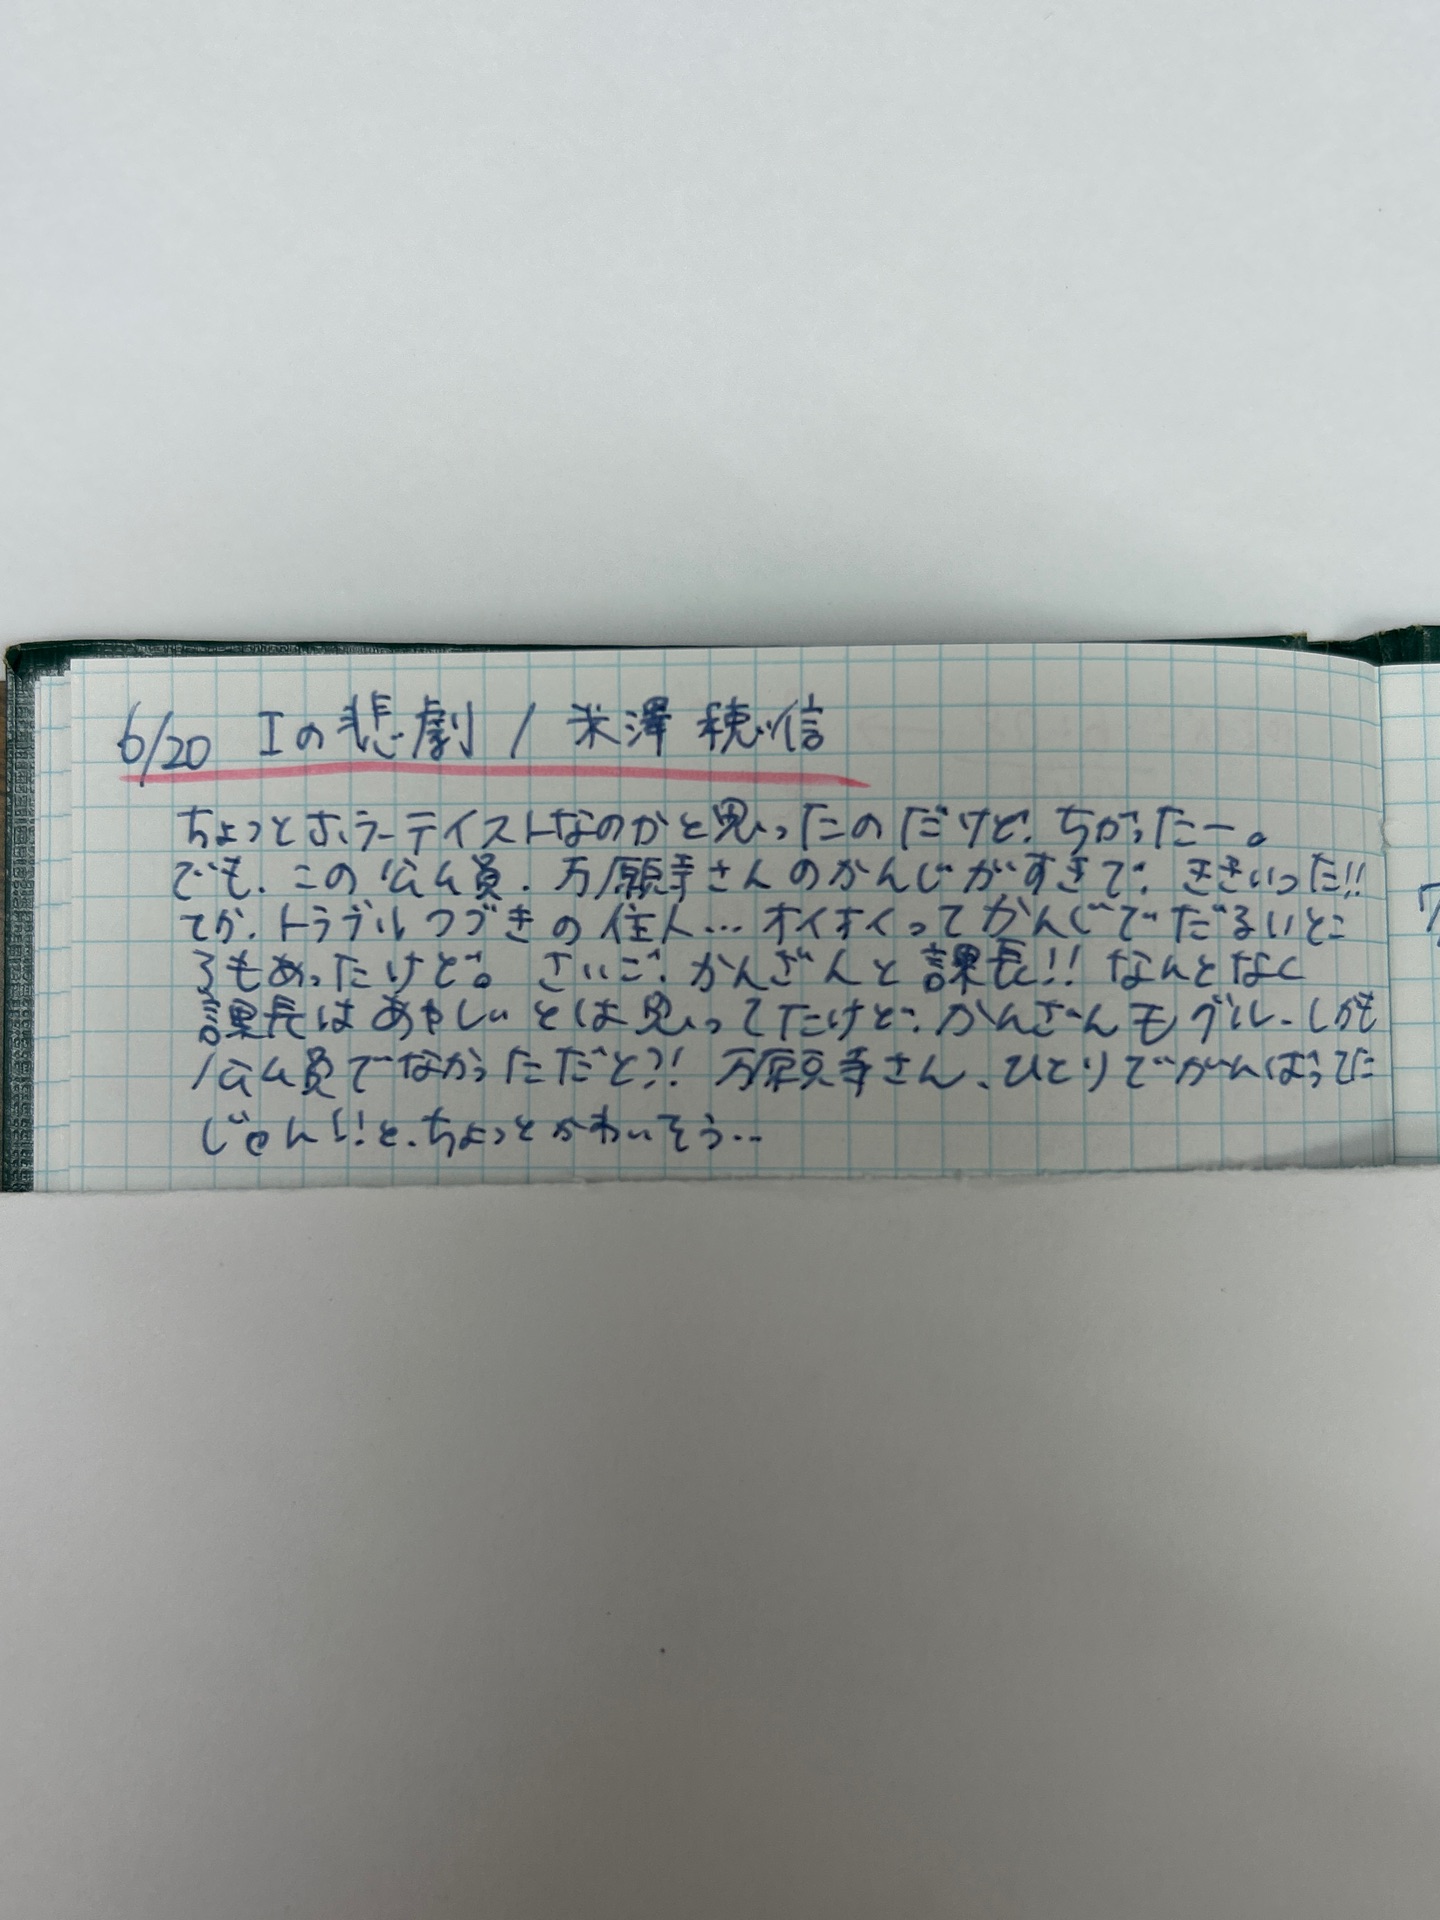 6/20 Iの悲劇 / 米澤 穂信
ちょっとホラーテイストなのかと思ったのだけど、ちがったー。
でも、この公ム員、万願寺さんのかんじがすきで、ききいった!!
てか、トラブルつづきの住人… オイオイってかんじでだるいとこ
ろもあったけど。 さいご、かんざんと課長!! なんとなく
課長はあやしいとは思ってたけど、かんざんもグル、しかも
公ム員でなかっただと?! 万願寺さん、ひとりでがんばってた
じゃん!! と、ちょっとかわいそう…